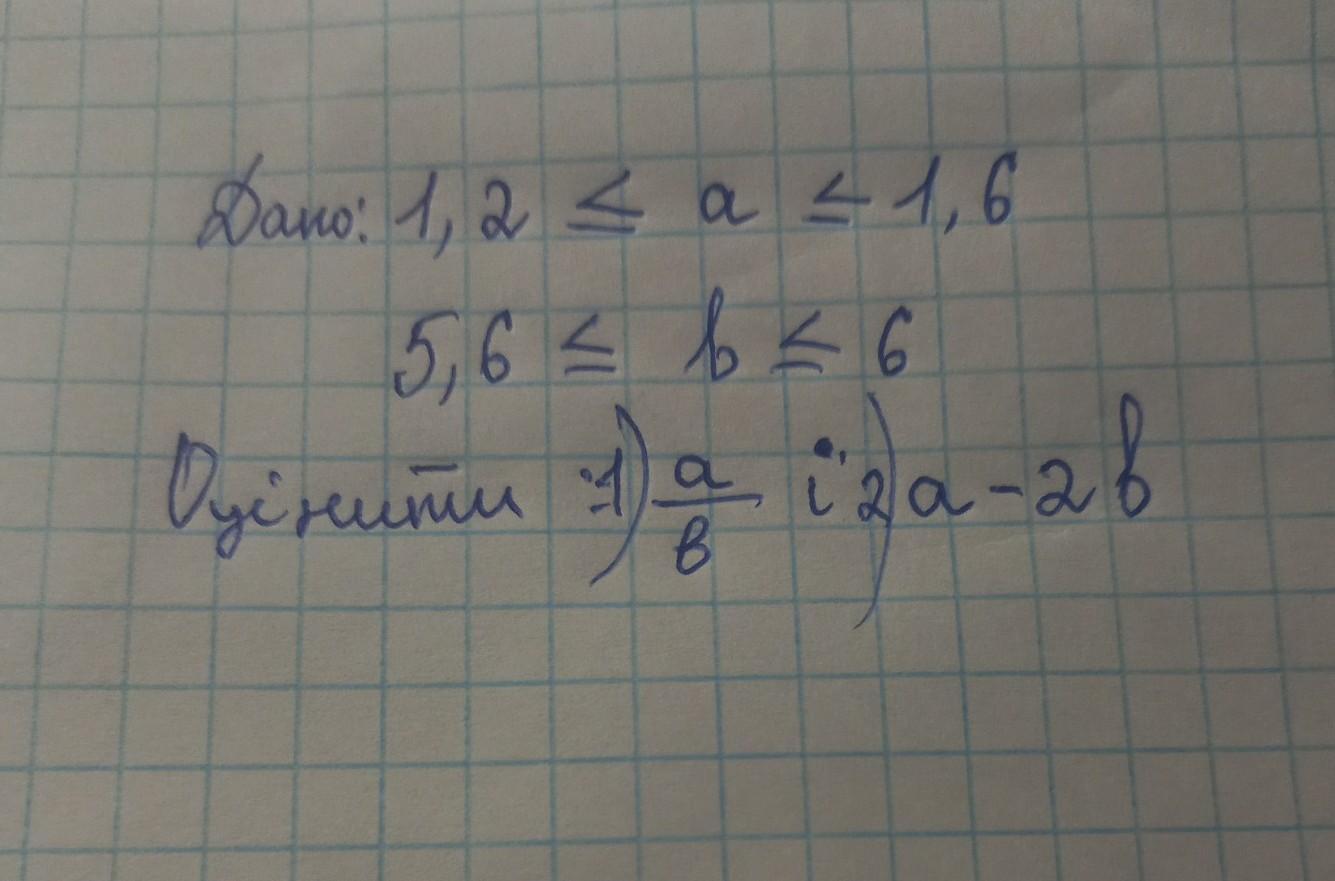 Дано: 1,2 ≤ a ≤ 1,6
5,6 ≤ b ≤ 6
Оцінити :1) a/b і 2) a - 2b